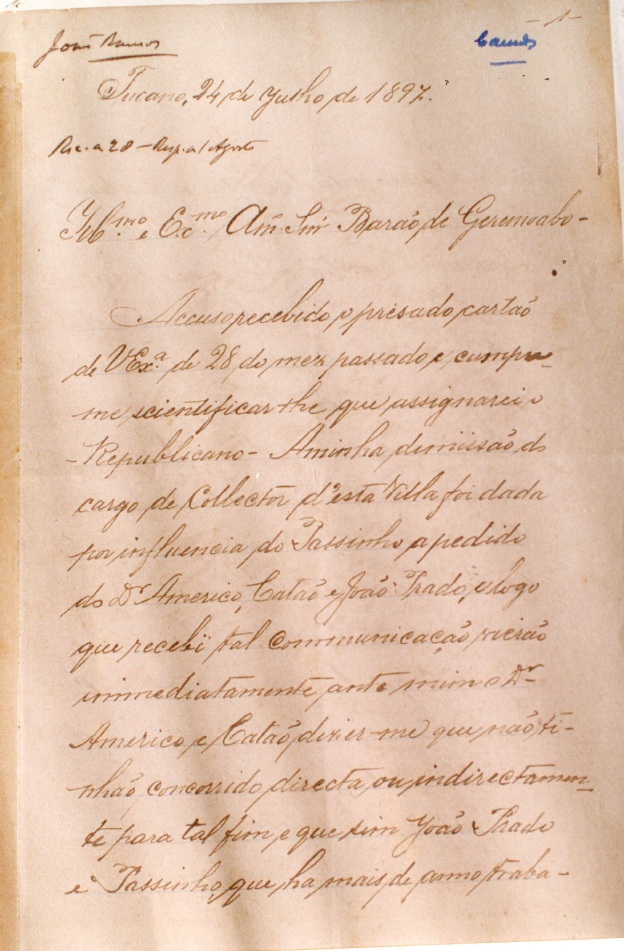 José Ramos
Canudos
-1-
Tucano, 24 de Julho de 1897.
Rec. a 28 - Resp. a 1 Agosto
Illmo. e Ex.mo Am.o Snr. Barão de Geremoabo -
Accuso recebido o presado cartão
de V Ex.ª de 28 do mez passado e cumpre-
me scientificar-lhe que assignarei o
- Republicano - A minha demissão do
cargo de Collector d'esta Villa foi dada
por influencia do Passinho a pedido
do Dr Americo, Catão e João Prado, e logo
que recebi tal communicação vierão
immediatamente ante mim o Dr
Americo e Catão, dizer-me que não ti-
nhão concorrido directa, ou indirectamen-
te para tal fim, e que sim João Prado
e Passinho, que ha mais de anno traba-